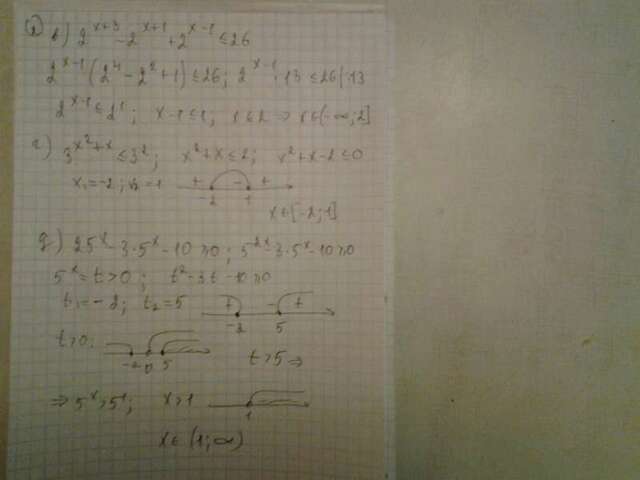 в) 2^(x+3) - 2^(x+1) + 2^(x-1) ≤ 26
2^(x-1) (2^4 - 2^2 + 1) ≤ 26; 2^(x-1) · 13 ≤ 26 | :13
2^(x-1) ≤ 2^1; x-1 ≤ 1; x ≤ 2 ⇒ x ∈ (-∞; 2]
г) 3^(x^2+x) ≤ 3^2; x^2+x ≤ 2; x^2+x-2 ≤ 0
x₁ = -2; x₂ = 1 + - +
-2 1
x ∈ [-2; 1]
д) 25^x - 3·5^x - 10 > 0; 5^(2x) - 3·5^x - 10 > 0
5^x = t > 0; t^2 - 3t - 10 > 0
t₁ = -2; t₂ = 5 + - +
-2 5
t > 0:
-2 0 5 t > 5 ⇒
⇒ 5^x > 5^1; x > 1
1
x ∈ (1; ∞)